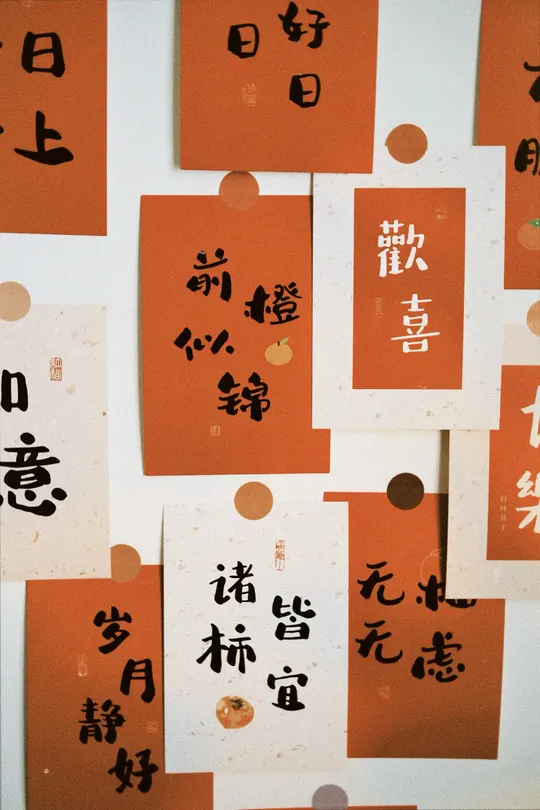 日
上
日好
日
前橙
似锦
歡
喜
意
岁
月
静
好
诸皆
柿宜
无
无虑